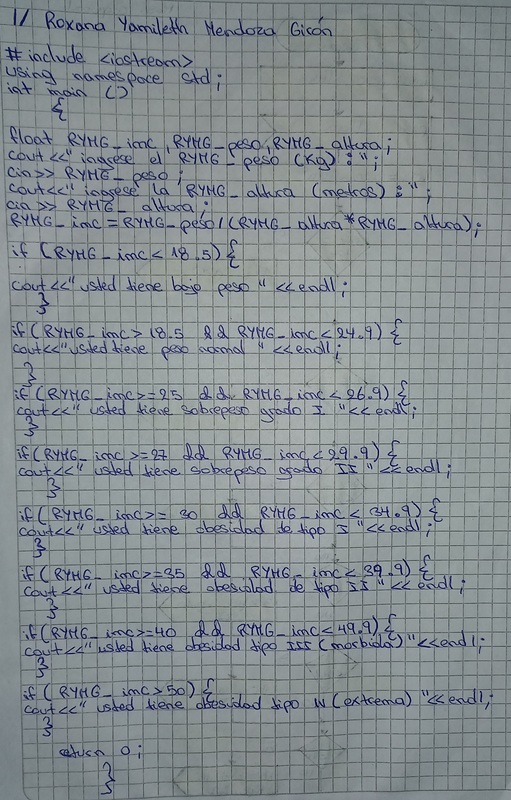 // Roxana Yamileth Mendoza Girón
# include <iostream>
using namespace std;
int main ()
{
float RYMG_imc, RYMG_peso, RYMG_altura;
cout<<" ingrese el RYMG_peso (Kg) : ";
cin>> RYMG_peso;
cout<<" ingrese la RYMG_altura (metros) : ";
cin >> RYMG_altura;
RYMG_imc = RYMG_peso/(RYMG_altura*RYMG_altura);
if (RYMG_imc < 18.5) {
cout<<" usted tiene bajo peso " <<endl;
}
if (RYMG_imc > 18.5 && RYMG_imc < 24.9) {
cout<<"usted tiene peso normal " <<endl;
}
if (RYMG_imc >= 25 && RYMG_imc < 26.9) {
cout<<" usted tiene sobrepeso grado I "<<endl;
}
if (RYMG_imc >= 27 && RYMG_imc < 29.9) {
cout<<" usted tiene sobrepeso grado II "<<endl;
}
if (RYMG_imc >= 30 && RYMG_imc < 34.9) {
cout<<" usted tiene obesidad de tipo I "<<endl;
}
if (RYMG_imc >= 35 && RYMG_imc < 39.9) {
cout<<" usted tiene obesidad de tipo II " << endl;
}
if (RYMG_imc >= 40 && RYMG_imc < 49.9) {
cout<<" usted tiene obesidad tipo III (morbida) "<<endl;
}
if (RYMG_imc > 50) {
cout<<" usted tiene obesidad tipo IV (extrema) "<<endl;
}
return 0;
}